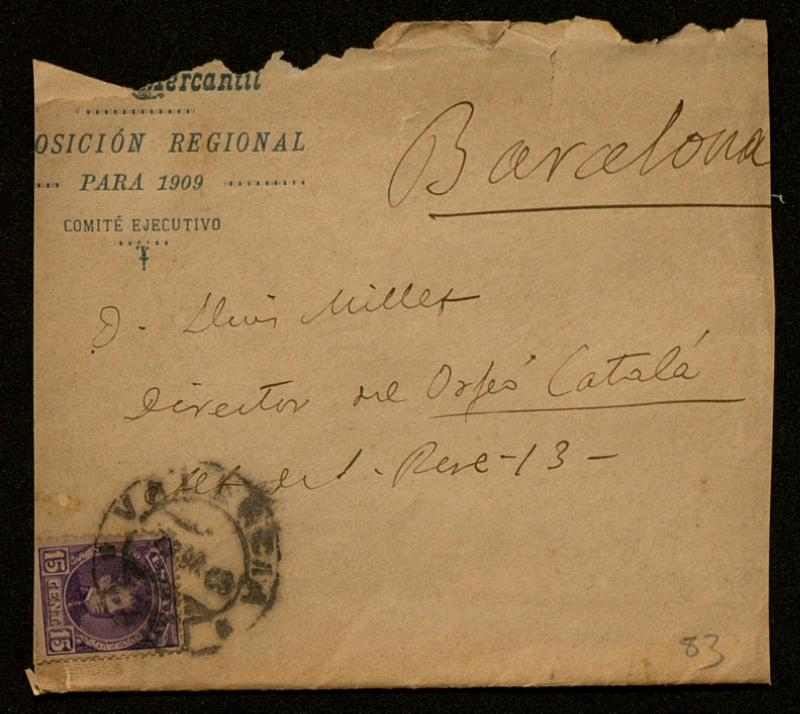 Mercantil
OSICIÓN REGIONAL
PARA 1909
COMITÉ EJECUTIVO
Barcelona
D. Lluis Millet
Director del Orfeó Catalá
del. Pere-13-
VALENCIA
15 CENTS 15
83